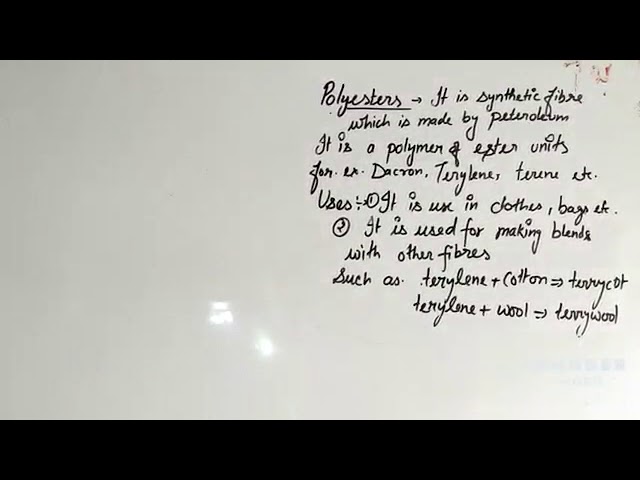 Polyesters → It is synthetic fibre
which is made by peteroleum
It is a polymer of ester units
for. ex. Dacron, Terylene, terene etc.
Uses :- ① It is use in clothes, bags etc.
② It is used for making blends
with other fibres
Such as. terylene + Cotton ⇒ terrycot
terylene + wool ⇒ terrywool